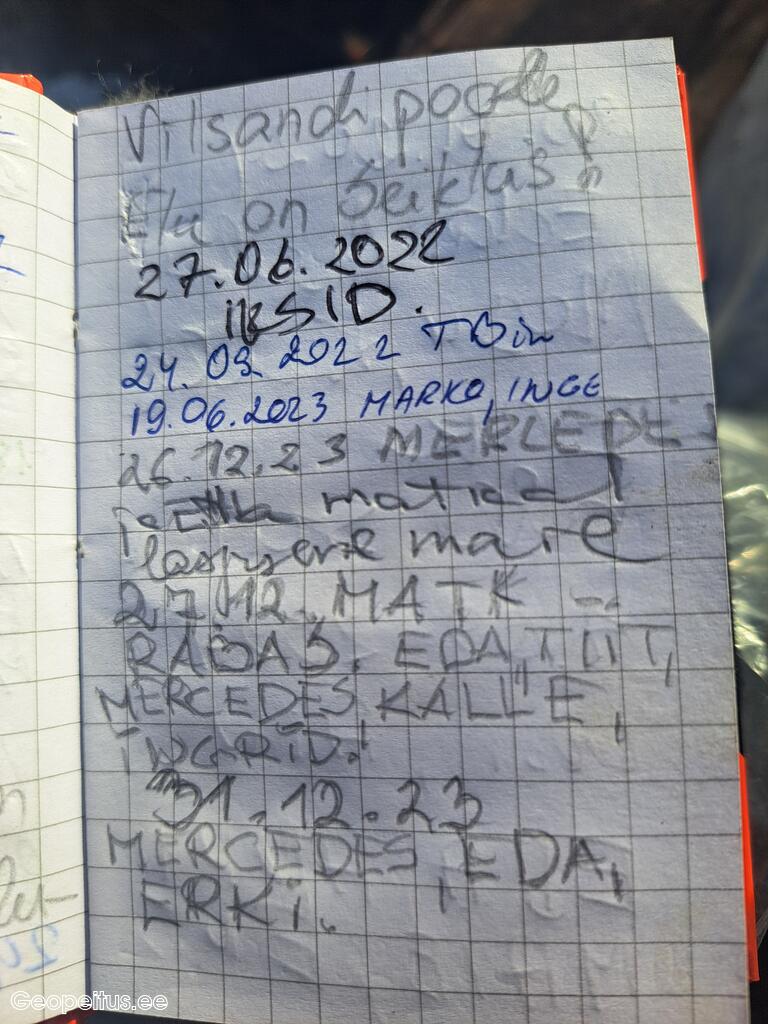 Vilsandi poole
Elu on Seiklus
27.06.2022
iKSID.
24.09.2022 TBin
19.06.2023 MARKO, INGE
26.12.23
matkal
mare
27.12. MATK
RABAS. EDA, TIIT,
MERCEDES, KALLE,
iNGRiD.
31.12.23
MERCEDES, EDA,
ERKi.
Geopeitus.ee